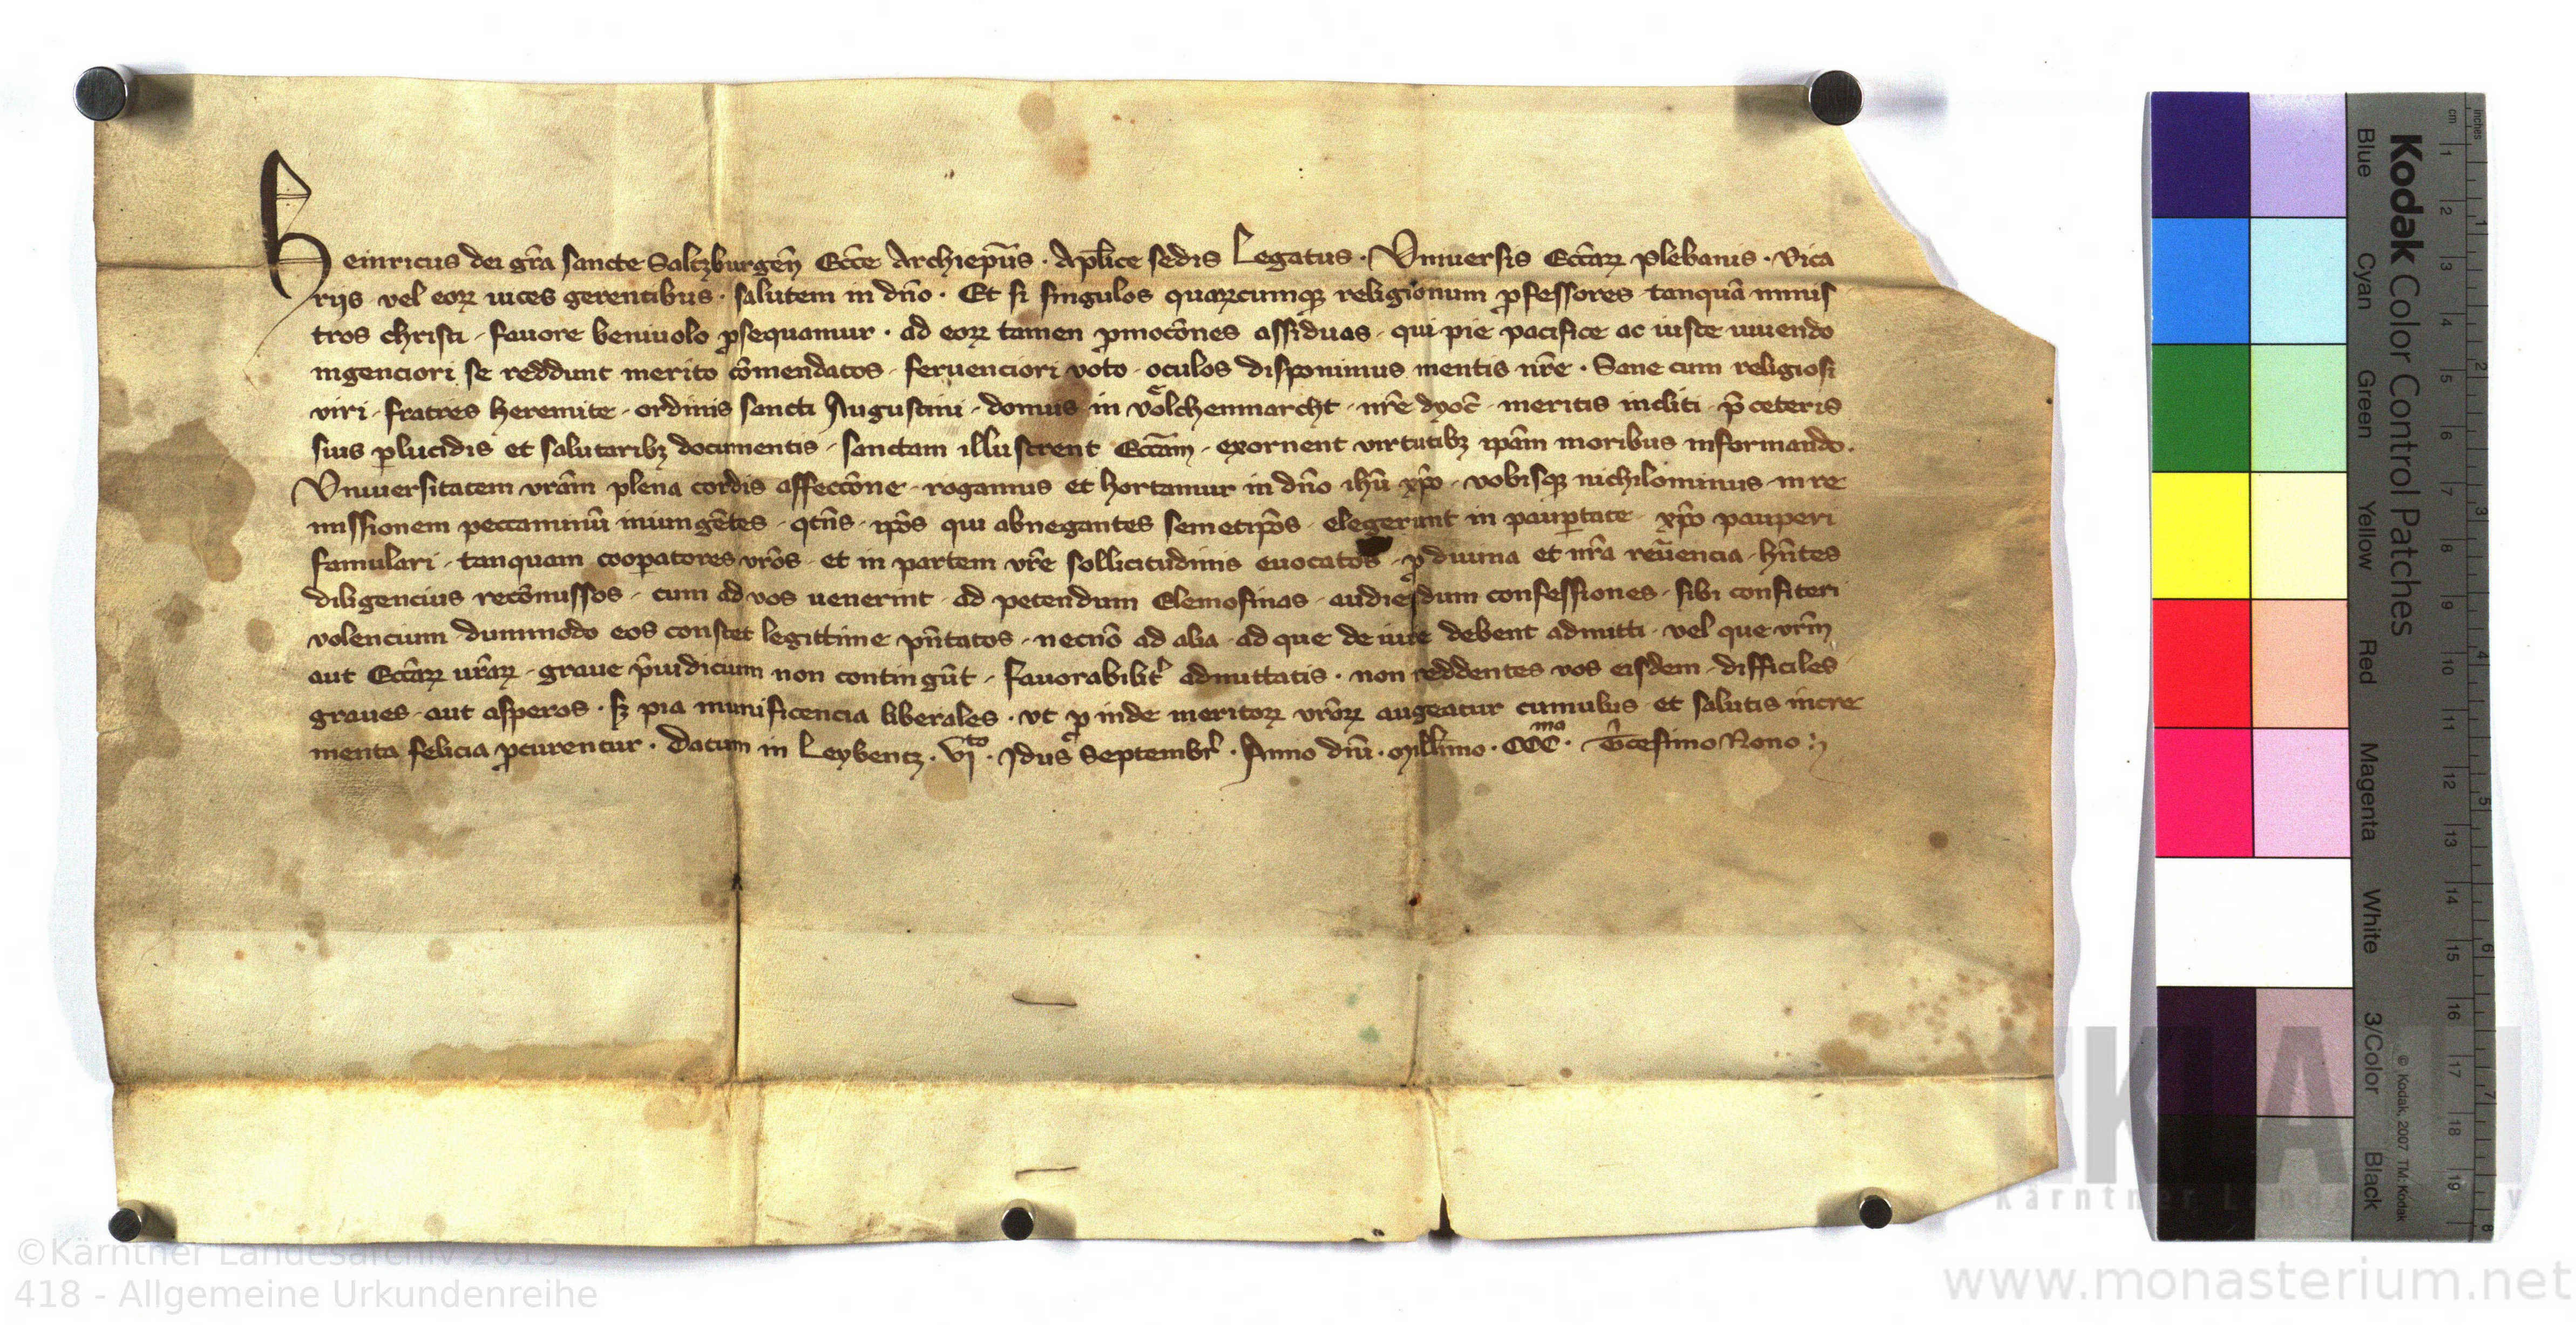 Heinricus dei gr̄a sancte Saltzburgen̄ Ecc̄e Archiep̄us · Apl̄ice sedis Legatus · Vniuersis Ecc̄aꝝ plebanis · vica
rijs vel eoꝝ uices gerentibus · salutem in dn̄o · Et si singulos quaꝝcumqꝫ religionum ꝓfessores tanquā minis
tros christi · fauore beniuolo ꝓsequamur · ad eoꝝ tamen ꝓmoc̄ones assiduas · qui pie pacifice ac iuste uiuendo
ingenciori se reddunt merito c̄omendatos · feruenciori voto · oculos disponimus mentis nr̄e · Sane cum religiosi
viri · fratres heremite · ordinis sancti Augustini · domus in voͤlchenmarcht · nr̄e dyoc̄ · meritis incliti · p̄ ceteris
suis ꝑlucidis et salutaribꝫ documentis · sanctam illustrent Ecc̄am · exornent virtutibꝫ ip̄am moribus informando ·
Vniuersitatem vr̄am plena cordis affecc̄one · rogamus et hortamur in dn̄o ih̄u xp̄o · vobisqꝫ nichilominus in re
missionem peccaminū iniungētes · qtn̄s · ip̄os qui abnegantes semetip̄os · elegerunt in pauꝑtate xp̄o pauperi
famulari · tanquam cooꝑatores vr̄os · et in partem vr̄e sollicitudinis euocatos · ꝓ diuina et nr̄a reūencia · hn̄tes
diligencius rec̄omissos · cum ad vos uenerint · ad petendum Elemosinas · audiendum confessiones · sibi confiteri
volencium dummodo eos constet legittime pn̄tatos · necnō ad alia · ad que de iure debent admitti · vel que vr̄m
aut Ecc̄aꝝ ur̄aꝝ · graue p̄iudicium non contingūt · fauorabilit̉ admittatis · non reddentes vos eisdem · difficiles
graues · aut asperos · sꝫ pia munificencia liberales · vt ꝓinde meritoꝝ vr̄oꝝ augeatur cumulus et salutis incre
menta felicia ꝓcurentur · Datum in Leybentz · vjᵗᵒ · Jdus Septembr̉ · Anno dn̄i · Mill̄imo · CCCᵐᵒ · T̂cesimo Nono
©Kärntner Landesarchiv 2013
418 - Allgemeine Urkundenreihe
www.monasterium.net
Kodak Color Control Patches
Blue Cyan Green Yellow Red Magenta White 3/Color Black
© Kodak, 2007 TM: Kodak
inches 1 2 3 4 5 6 7 8
cm 1 2 3 4 5 6 7 8 9 10 11 12 13 14 15 16 17 18 19